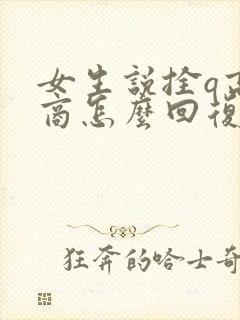 女生說拴q高
商怎麼回復
狂奔的哈士奇